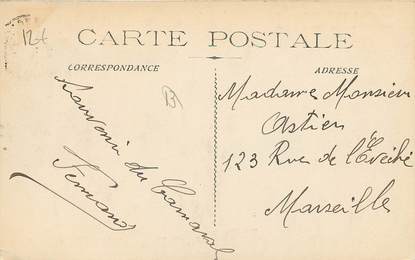 12€
CARTE POSTALE
CORRESPONDANCE
ADRESSE
B
Souvenir du Carnaval
Fernand
Madame Monsieur
Astier
123 Rue de l'Evêché
Marseille